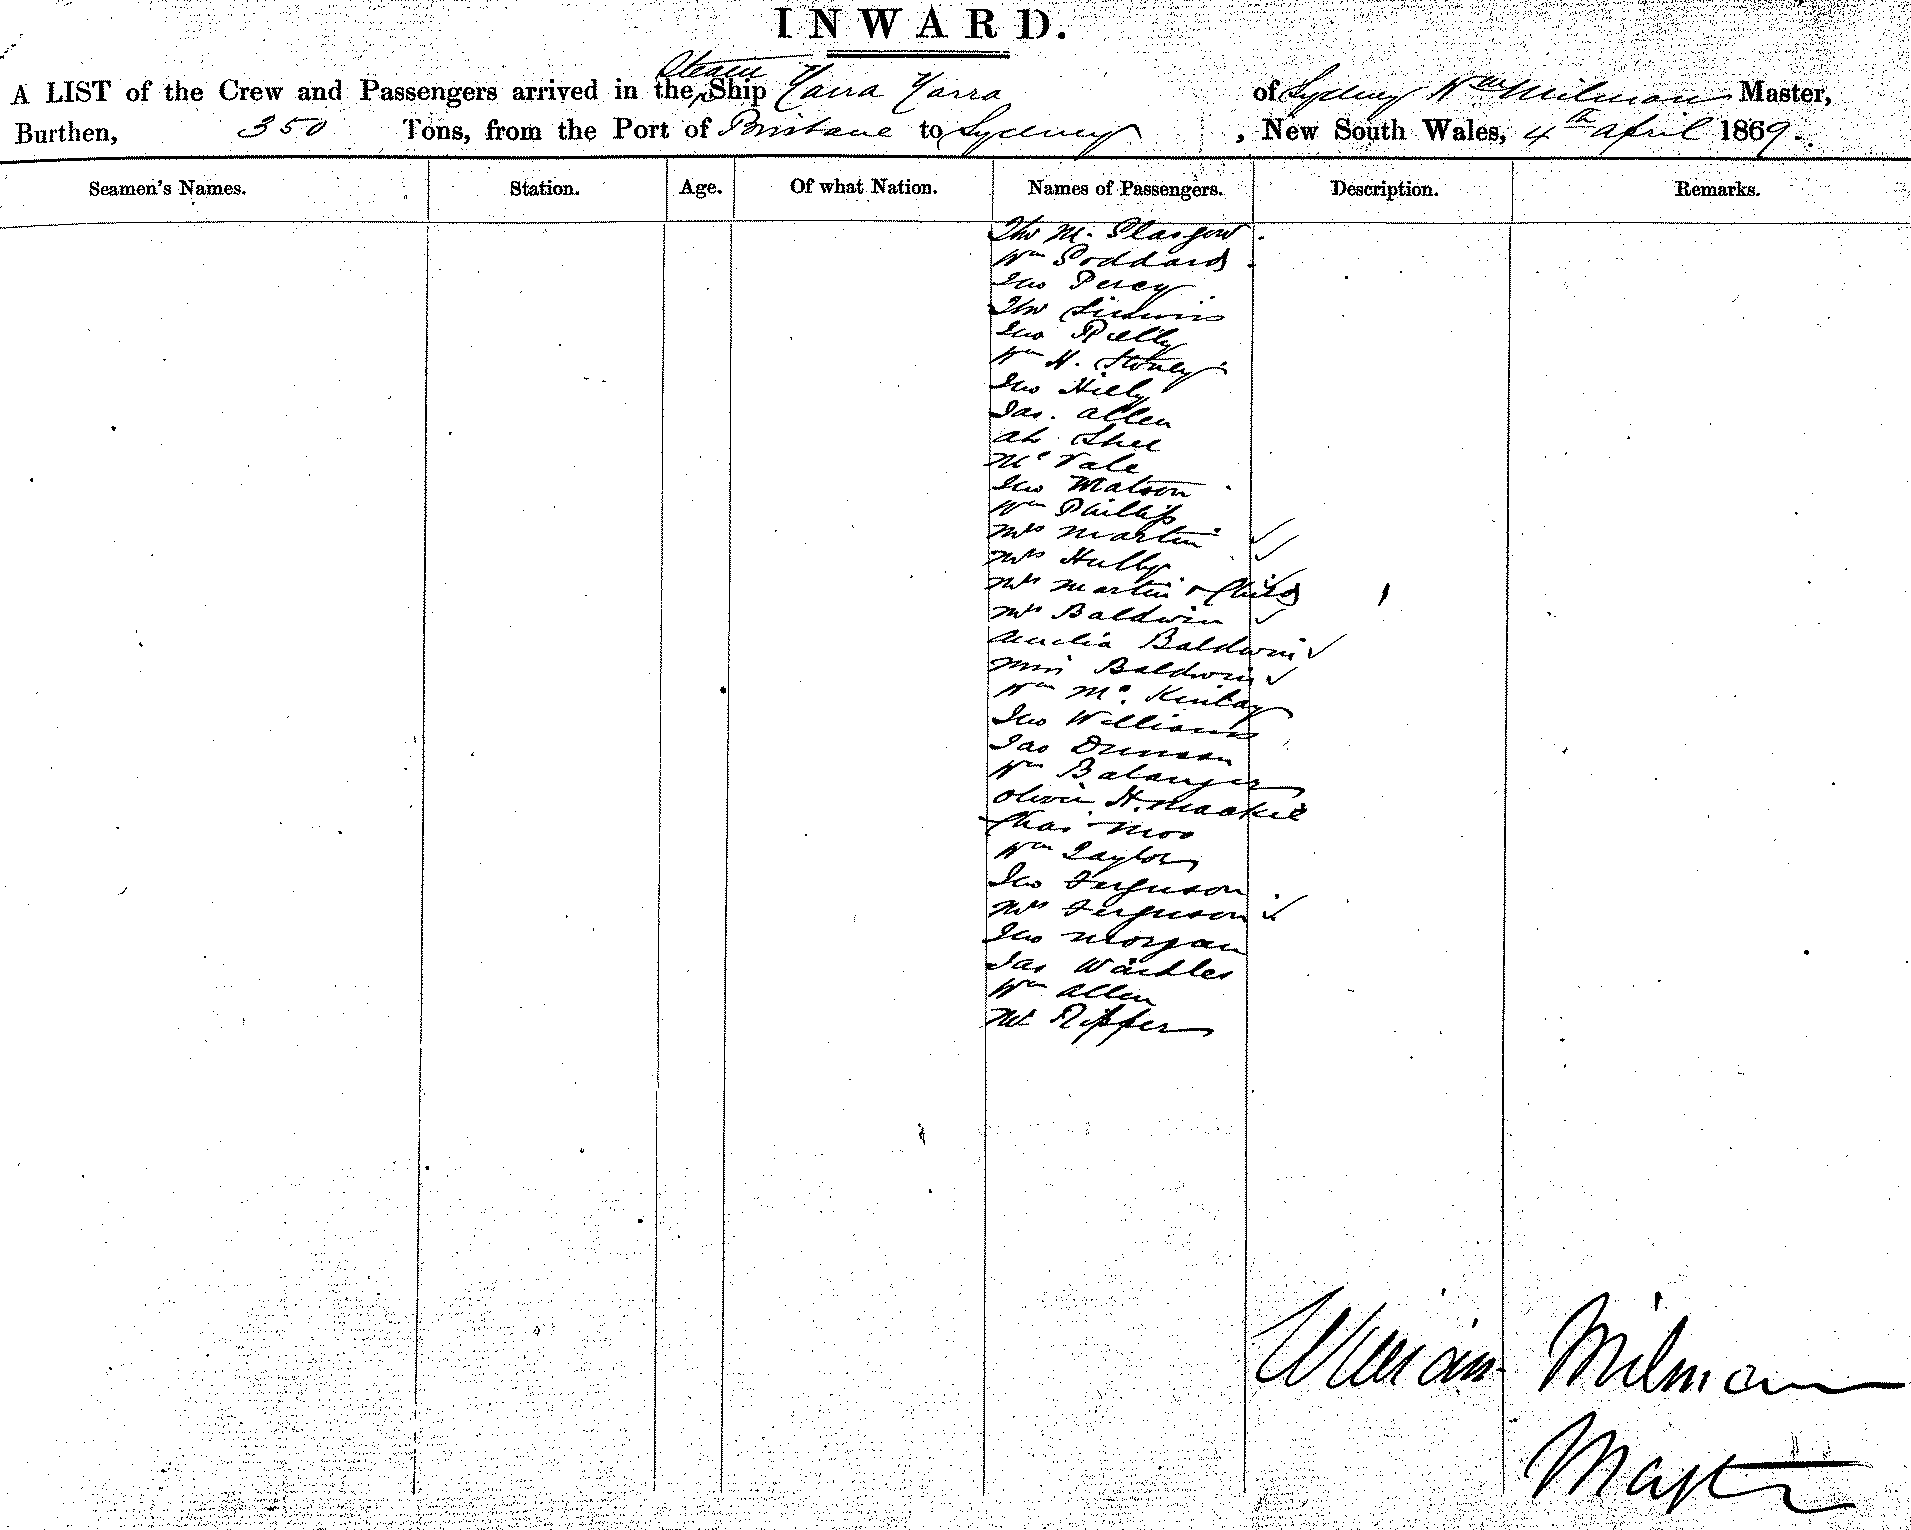 INWARD.
A LIST of the Crew and Passengers arrived in the Steam Ship Yarra Yarra of Sydney Wm Milman Master,
Burthen, 350 Tons, from the Port of Brisbane to Sydney, New South Wales, 4th April 1869.
Seamen's Names. Station. Age. Of what Nation. Names of Passengers. Description. Remarks.
Thos M. Glasgow
Wm Goddard
Jno Percy
Thos
Jno Reilly
Wm H. Stoney
Jno
Jas. Allen
Ah Shee
Mc Vale
Jno Watson
Wm Phillips
Mrs Martin
Mrs Hully
Mrs Martin & Child 1
Mrs Baldwin
Amelia Baldwin
Miss Baldwin
Wm Mc. Kinlay
Jno Williams
Jas Duncan
Wm Balanger
Oliver H. Mackie
Chas Moo
Wm Taylor
Jno Ferguson
Mrs Ferguson
Jno Morgan
Jas
Wm Allen
Mr Pepper
William Milman
Master